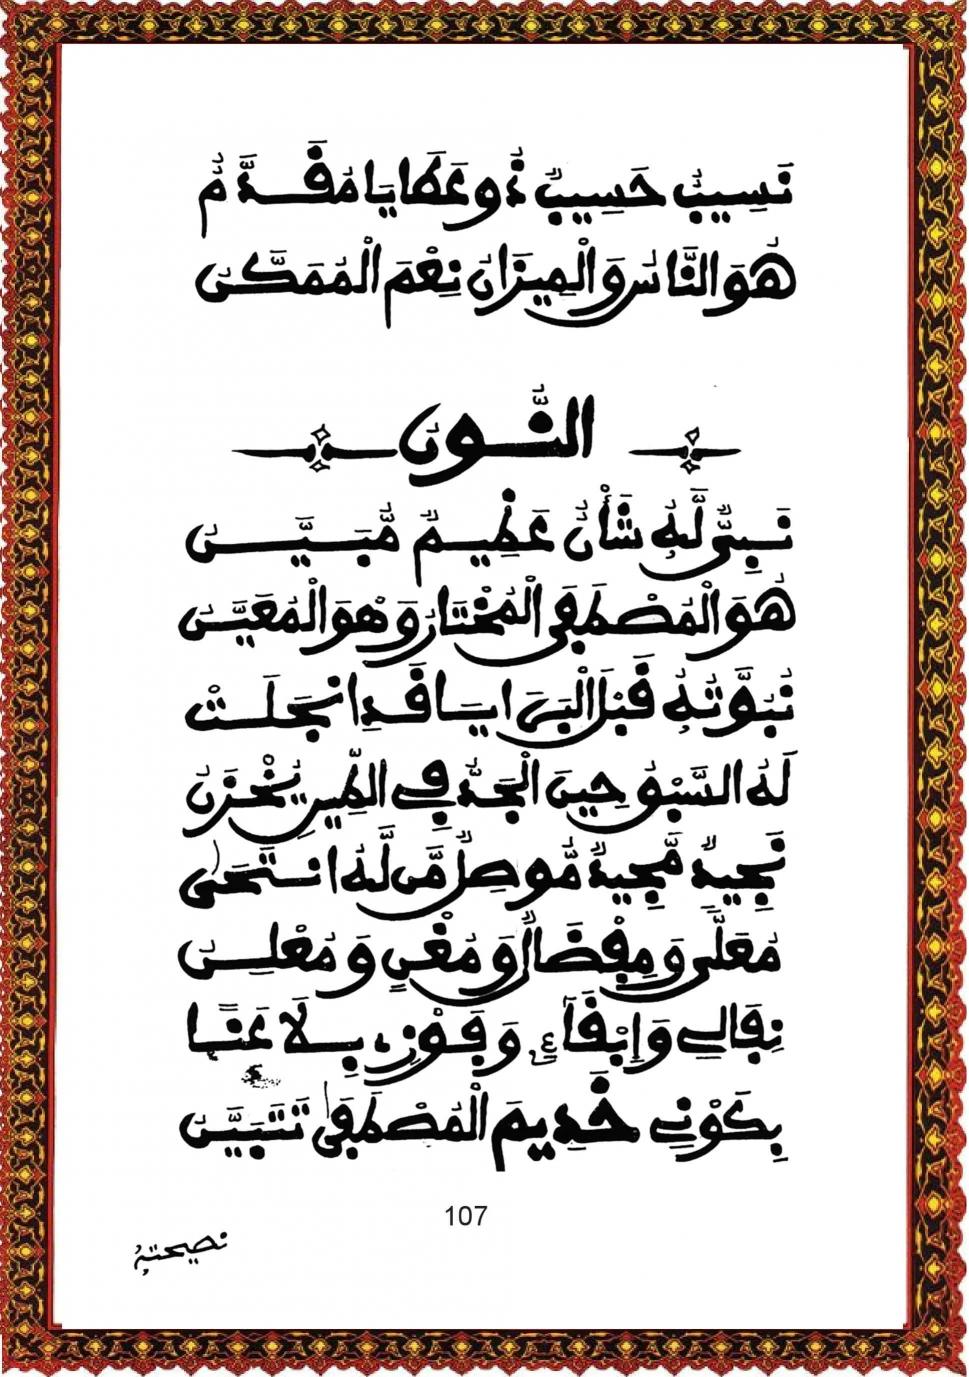 نَسِيبٌ حَسِيبٌ ذُو عَطَايَا مُقَدَّمُ
هُوَ النَّاسُ وَالْمِيزَانُ نِعْمَ الْمُمَكَّنُ
النُّونُ
نَبِيٌّ لَهُ شَأْنٌ عَظِيمٌ مُّبَيَّنُ
هُوَ الْمُصْطَفَى الْمُخْتَارُ وَهْوَ الْمُعَيَّنُ
نُبُوَّتُهُ قَبْلَ الْبَرَايَا قَدِ انجَلَتْ
لَهُ السَّبْقُ حِينَ الْجَدُّ فِي الطِّينِ يُخْزَنُ
نَجِيدٌ مَّجِيدٌ مُّوصِلٌ مَّن لَّهُ انتَحَى
مُعَلًّى وَمِفْضَالٌ وَمُغْنٍ وَمُعْلِنُ
نِقَالِي وَإِبْقَآءٍ وَفَوْزِي بِلَا عَنًا
بِكَوْنِي خَدِيمَ الْمُصْطَفَى تَتَبَيَّنُ
107
نصيحته